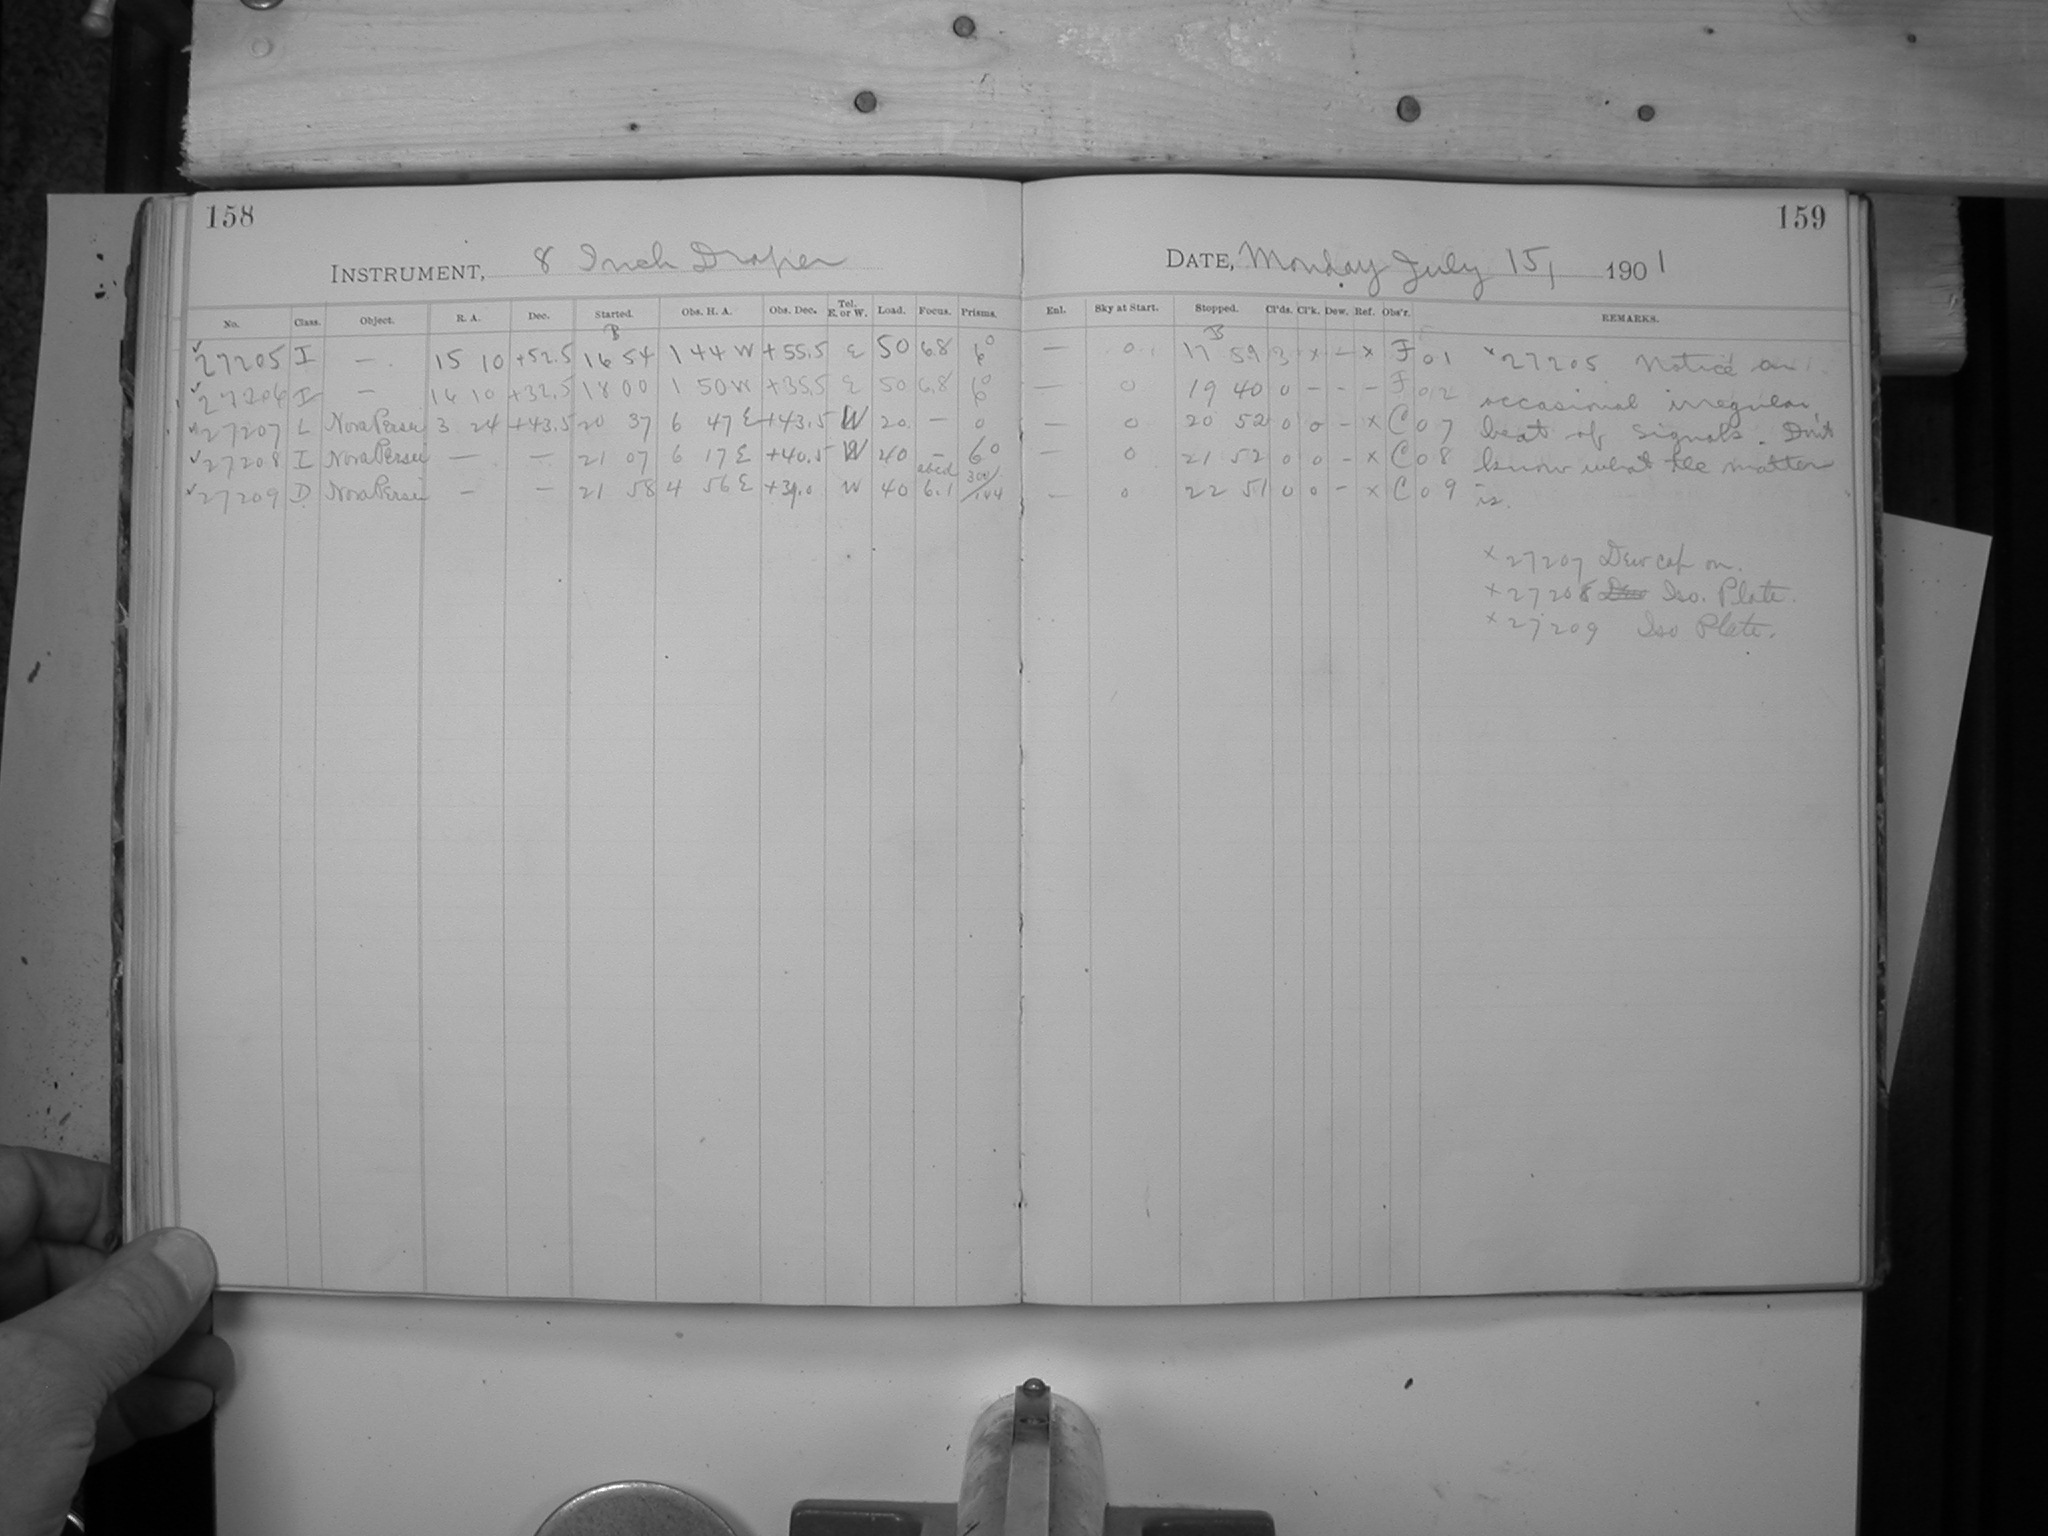 158
INSTRUMENT, 8 Inch Draper
No. Class. Object. R. A. Dec. Started. Obs. H. A. Obs. Dec. Tel. E. or W. Load. Focus. Prisms.
B
✓27205 I — 15 10 +52.5 16 54 1 44 W +55.5 E 50 6.8
✓27206 I — 16 10 +32.5 18 00 1 50 W +35.5 E 50 6.8
27207 L Nova Persei 3 24 +43.5 20 37 6 47 E +43.5 W 20 — 0
✓27208 I Nova Persei — — 21 07 6 17 E +40.5 W 40 — 60
✓27209 D Nova Persei — — 21 58 4 56 E W 40 6.1
159
DATE, Monday July 15, 1901
Enl. Sky at Start. Stopped. Cl'ds. Cl'k. Dew. Ref. Obs'r. REMARKS.
B
— 0 17 59 3 x – x F 01
— 0 19 40 0 – – – F 02
— 0 20 52 0 0 – x C 07
— 0 21 52 0 0 – x C 08
— 0 22 51 0 0 – x C 09
x27205 Notice an
occasional irregular
beat of signals. Don't
know what the matter
is.
x 27207 Dew cap on.
x 27208 Dew Iso. Plate.
x 27209 Iso Plate.